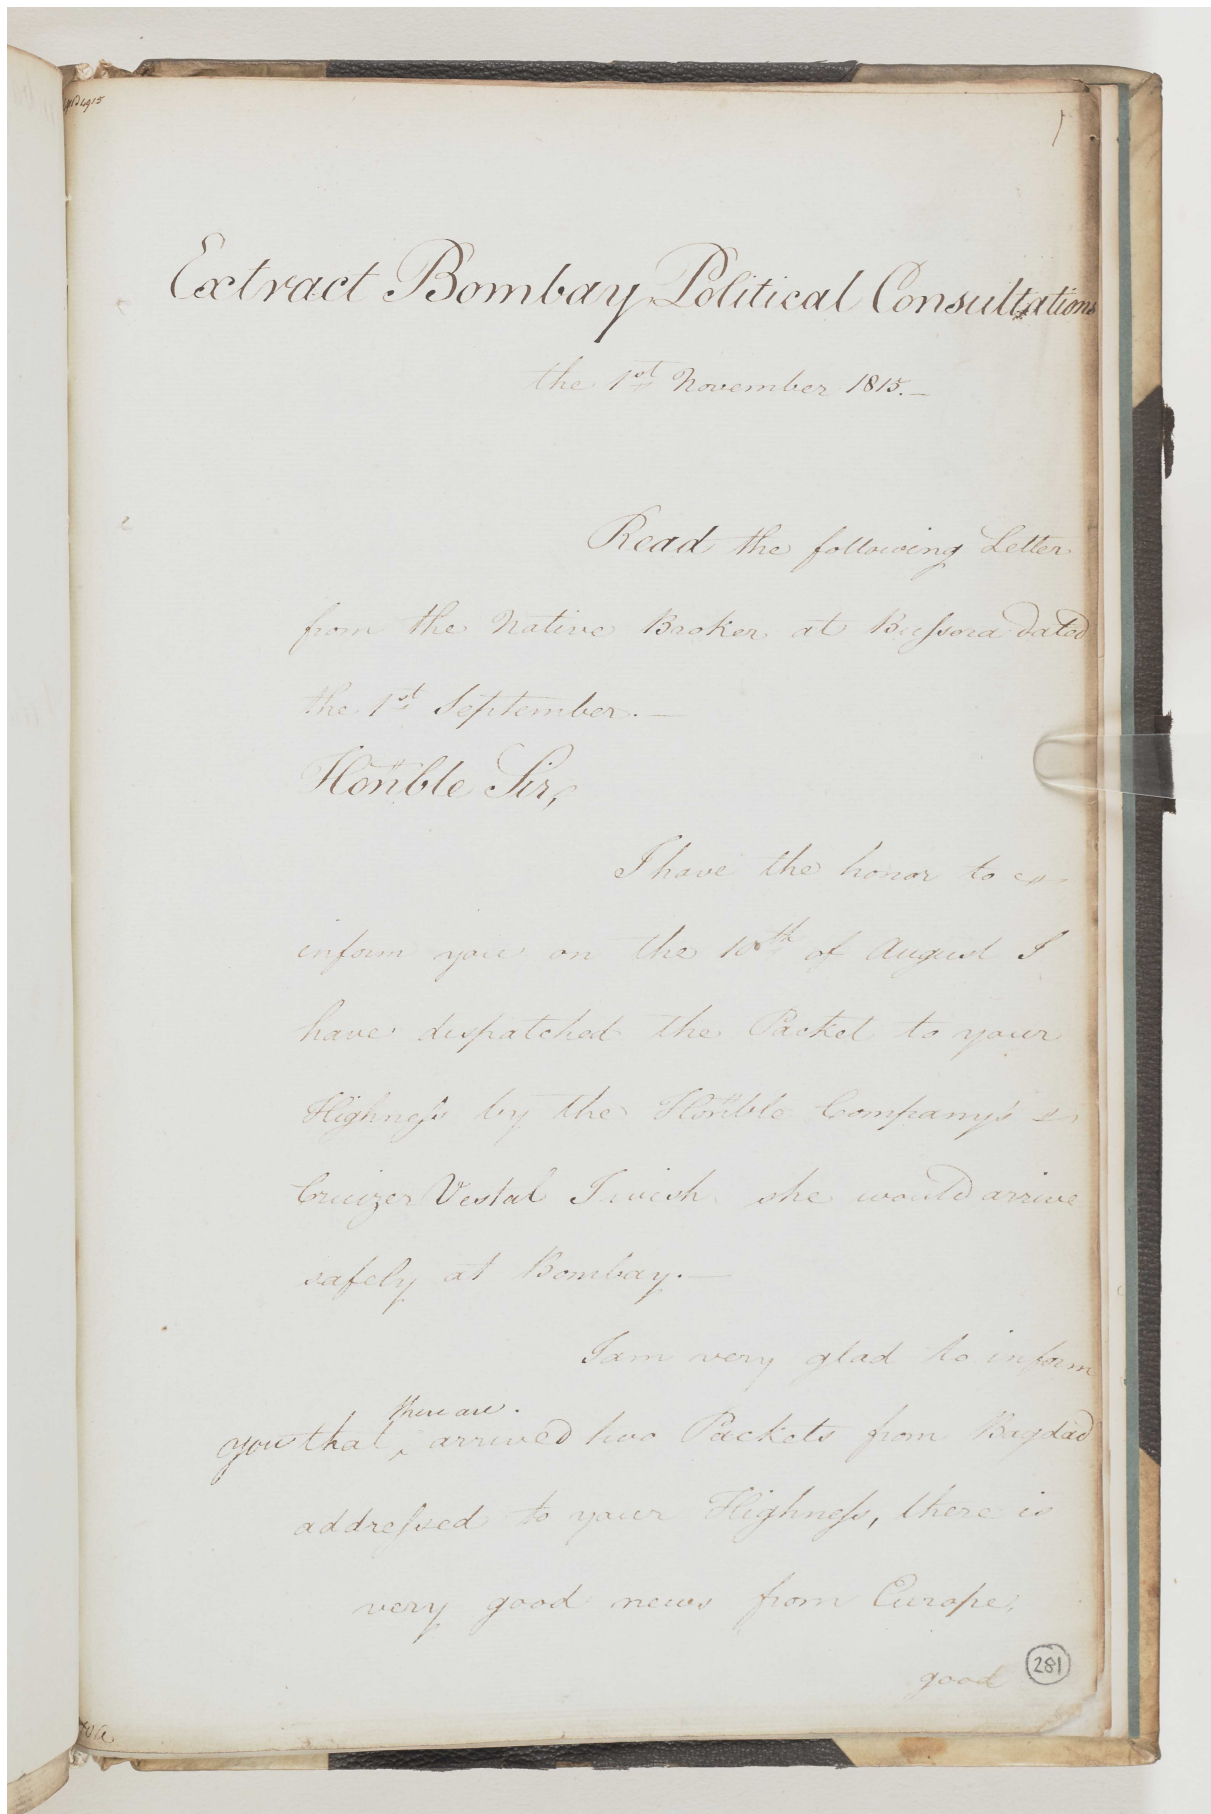 Extract Bombay Political Consultations
the 1st November 1815.—
Read the following Letter
from the Native Broker at Bussora dated
the 1st September.—
Hon'ble Sir,
I have the honor to
inform you on the 10th of August I
have dispatched the Packet to your
Highness by the Hon'ble Company's
Cruizer Vestal I wish she would arrive
safely at Bombay.—
I am very glad to inform
there are.
you that ‸ arrived two Packets from Bagdad
addressed to your Highness, there is
very good news from Europe.
good
281